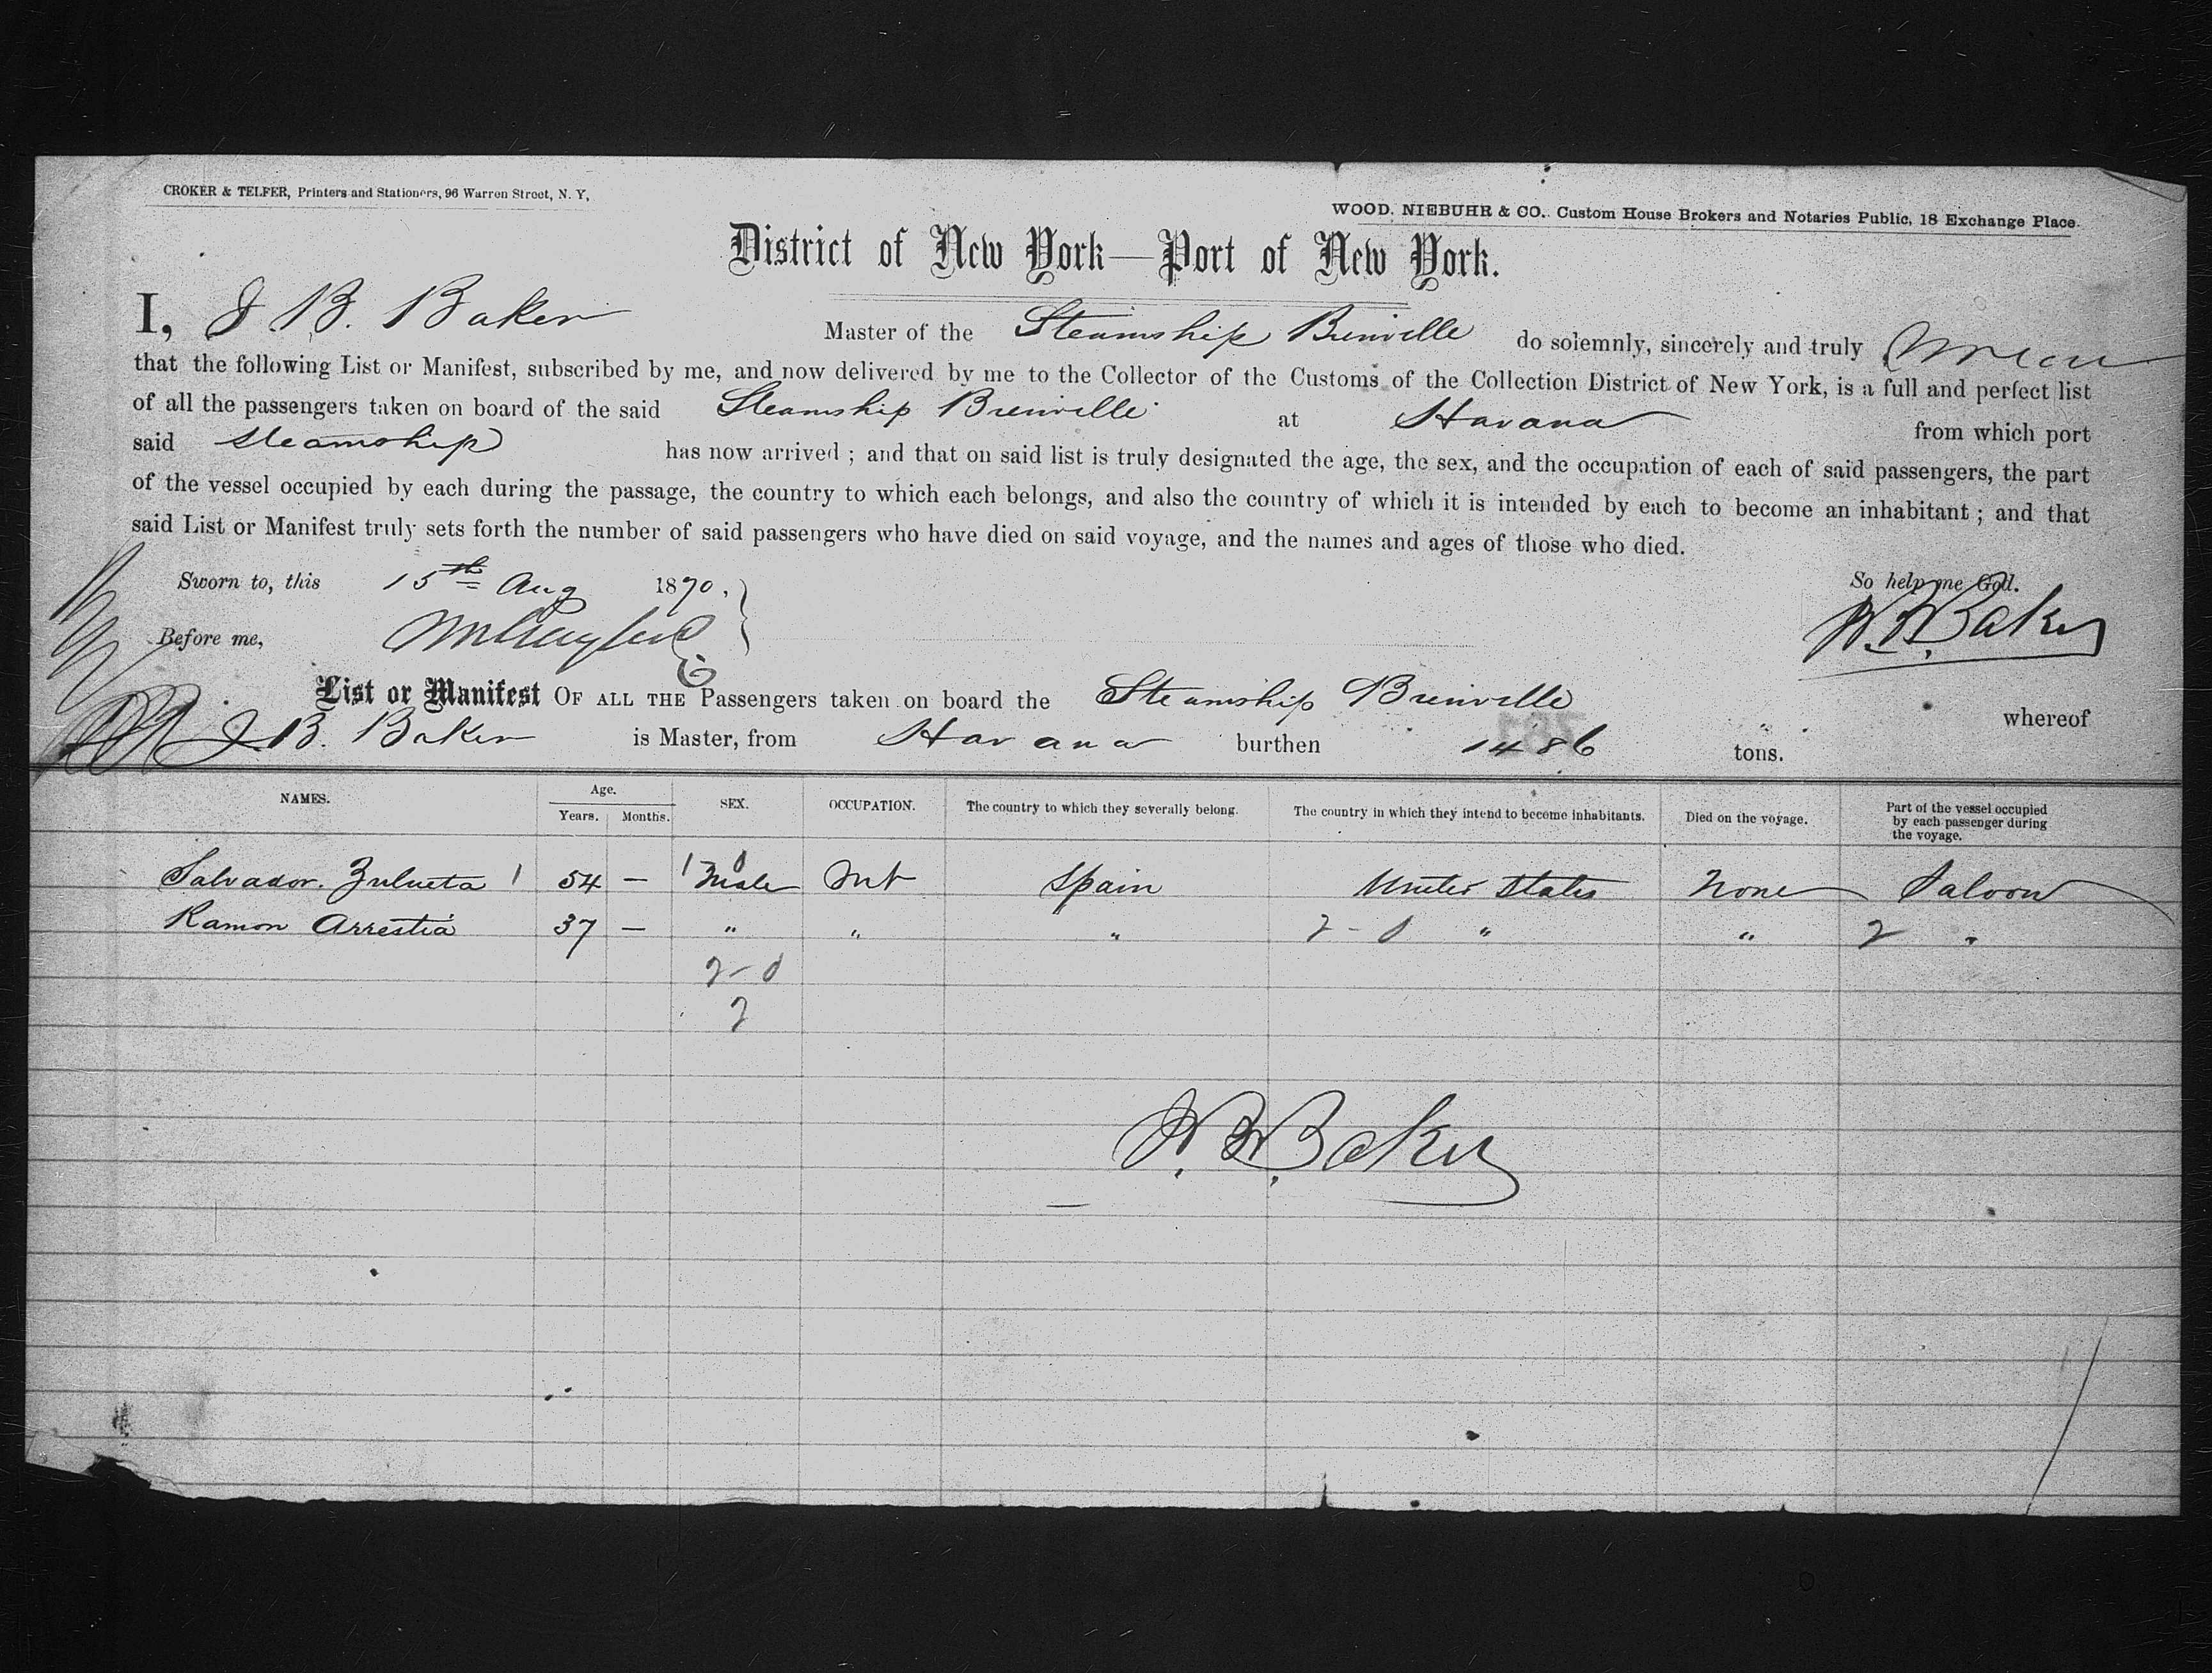 CROKER & TELFER, Printers and Stationers, 96 Warren Street, N. Y,
WOOD. NIEBUHR & CO. Custom House Brokers and Notaries Public, 18 Exchange Place.
District of New York—Port of New York.
I, J B. Baker Master of the Steamship Bienville do solemnly, sincerely and truly
that the following List or Manifest, subscribed by me, and now delivered by me to the Collector of the Customs of the Collection District of New York, is a full and perfect list
of all the passengers taken on board of the said Steamship Bienville at Havana from which port
said Steamship has now arrived ; and that on said list is truly designated the age, the sex, and the occupation of each of said passengers, the part
of the vessel occupied by each during the passage, the country to which each belongs, and also the country of which it is intended by each to become an inhabitant ; and that
said List or Manifest truly sets forth the number of said passengers who have died on said voyage, and the names and ages of those who died.
Sworn to, this 15th Aug 1870. So help me God.
Before me, Baker
List or Manifest OF ALL THE Passengers taken on board the Steamship Bienville whereof
J. B. Baker is Master, from Havana burthen 1486 tons.
NAMES. Age. Years. Months. SEX. OCCUPATION. The country to which they severally belong. The country in which they intend to become inhabitants. Died on the voyage. Part of the vessel occupied by each passenger during the voyage.
Salvador. Zulueta 1 54 — 1 0 Male Mt Spain United States None Saloon
Ramon Arrestia 37 — " " " 2 - 0 " " 2 "
2 - 0
2
Baker